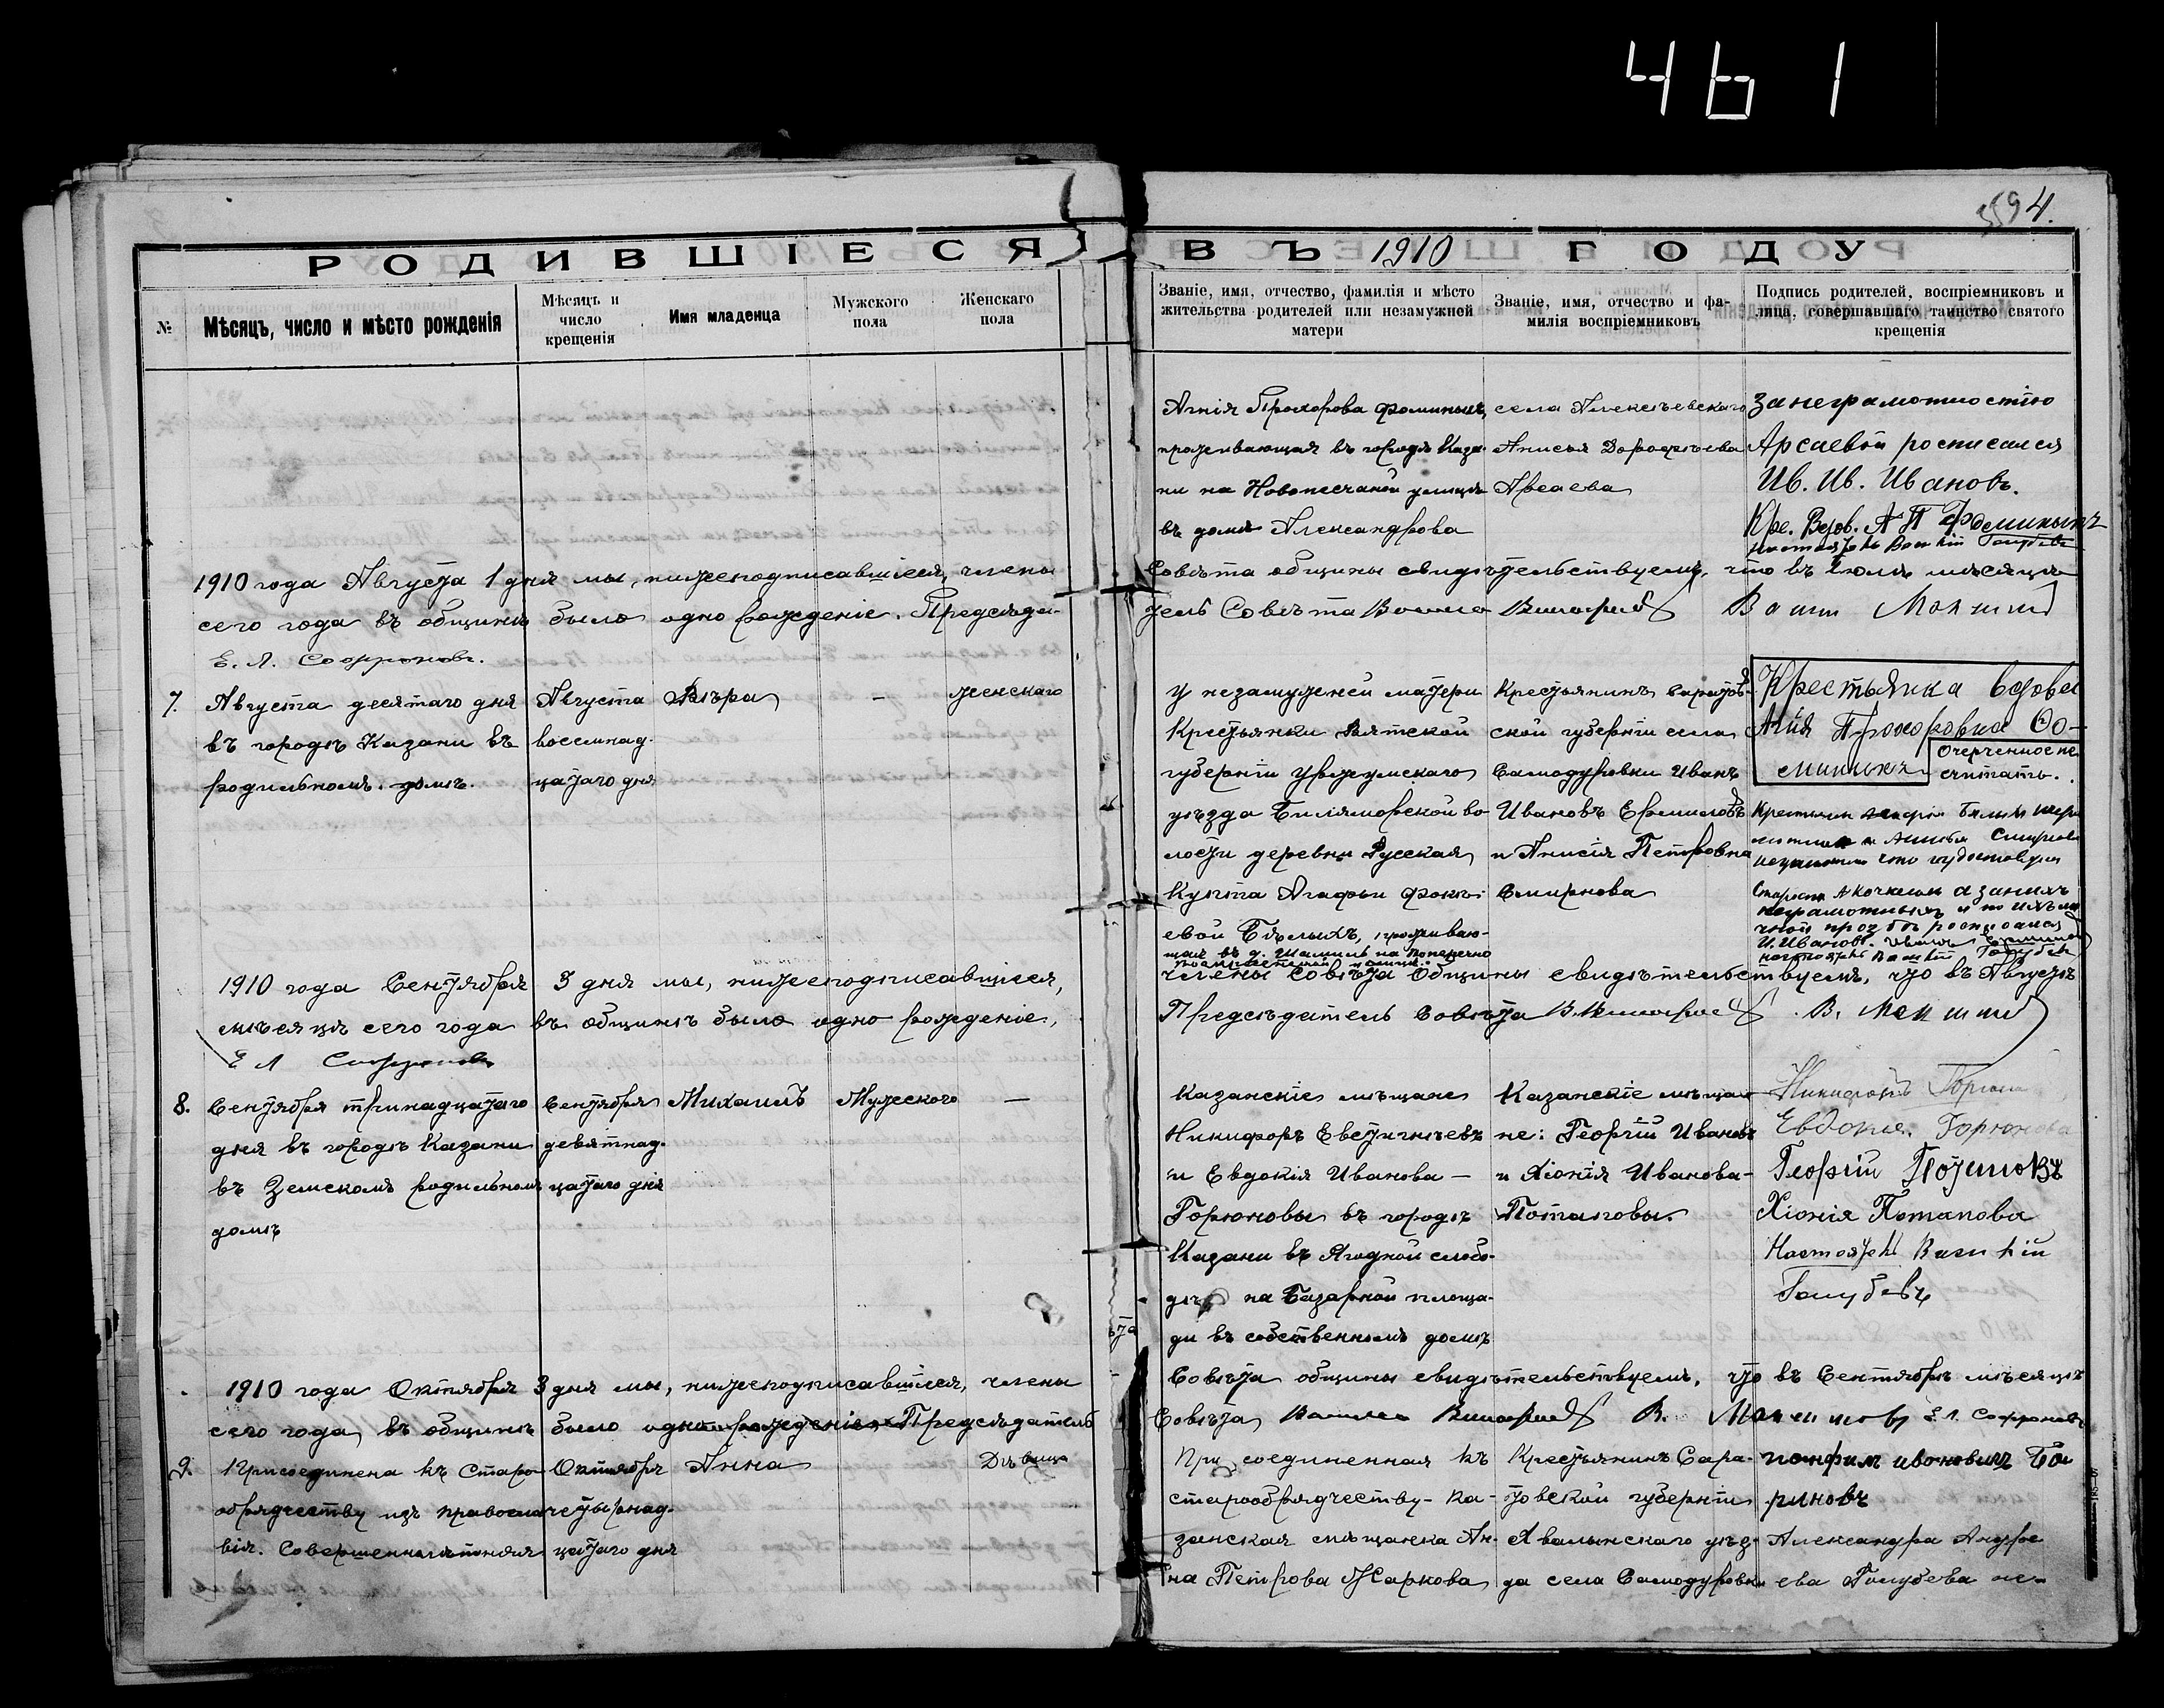 461
594.
РОДИВШІЕСЯ ВЪ 1910 ГОДУ
№
Мѣсяцъ, число и мѣсто рожденія
Мѣсяцъ и
число
крещенія
Имя младенца
Мужского
пола
Женскаго
пола
Званіе, имя, отчество, фамилія и мѣсто
жительства родителей или незамужней
матери
Званіе, имя, отчество и фа-
милія воспріемниковъ
Подпись родителей, воспріемниковъ и
лица, совершавшаго таинство святого
крещенія
Агнія Прохорова Фоминыхъ,
проживающая въ городѣ Каза-
ни на Новопесчаной улицѣ
въ домѣ Александрова
села Алексѣевскаго
Анисья Дорофѣева
Арсаева
За неграмотностію
Арсаевой росписался
Ив. Ив. Ивановъ.
Кре. Вдов. А П Фоминыхъ
Голубевъ
1910 года Августа 1 дня мы, нижеподписавшіеся, члены Совѣта общины свидѣтельствуемъ, что въ Іюлѣ мѣсяцѣ
сего года въ общинѣ было одно рожденіе. Предсѣда- тель Совѣта
Е. Л. Софроновъ.
7.
Августа десятаго дня
въ городѣ Казани въ
родильномъ домѣ.
Августа
восемнад-
цатаго дня
Вѣра
–
женскаго
У незамужней матери
Крестьянки Вятской
губерніи Уржумскаго
уѣзда Биляморской во-
лости деревни Русская
Купта Агафьи Фокѣ-
евой Бѣлыхъ, проживаю-
щая въ д. на Поперечно
Крестьянинъ Саратов-
ской губерніи села
Самодуровки Иванъ
Ивановъ Ермиловъ
и Анисія Петровна
Смирнова
Крестьянка вдова
Агія Прохоровна Фо-
миныхъ
Очерченное не
считать.
а за нихъ
неграмотныхъ и по ихъ ли
чной прозбѣ росписался
И. Ивановъ.
Голубевъ
1910 года Сентября 3 дня мы, нижеподписавшіеся, члены Совѣта Общины свидѣтельствуемъ, что въ Августѣ
мѣсяцѣ сего года въ общинѣ было одно рожденіе, Предсѣдатель Совѣта
Е Л Софроновъ
8.
Сентября тринадцатаго
дня въ городѣ Казани
въ Земскомъ родильномъ
домѣ
Сентября
девятнад-
цатаго дня
Михаилъ
Мужского
–
Казанскіе мѣщане
Никифоръ Евстигнѣевъ
и Евдокія Иванова –
Горюновы въ городѣ
Казани въ Ягодной слобо-
дѣ на Базарной площа-
ди въ собственномъ домѣ
Казанскіе мѣща-
не: Георгій Ивановъ
и Хіонія Иванова-
Потаповы.
Никифоръ
Евдокия Горюнова
Георгій Потаповъ
Хіонія Потапова
Настоятель Василій
Голубевъ
1910 года Октября 3 дня мы, нижеподписавшіеся, члены Совѣта общины свидѣтельствуемъ, что въ Сентябрѣ мѣсяцѣ
сего года, въ общинѣ было одно рожденіе Предсѣдатель Совѣта, Е Л. Софроновъ
9.
Присоединена къ Старо-
обрядчеству изъ православ
вія. Совершеннолѣтняя
Октября
четырнад-
цатаго дня
Анна
Дѣвица
Присоединенная къ
старообрядчеству- Ка-
занская мѣщанка Ан-
на Петрова Жаркова
Крестьянинъ Сара-
товской губерніи
Хвалынскаго уѣз-
да села Самодуровки
риновъ
Александра Андре
ева Голубева не-